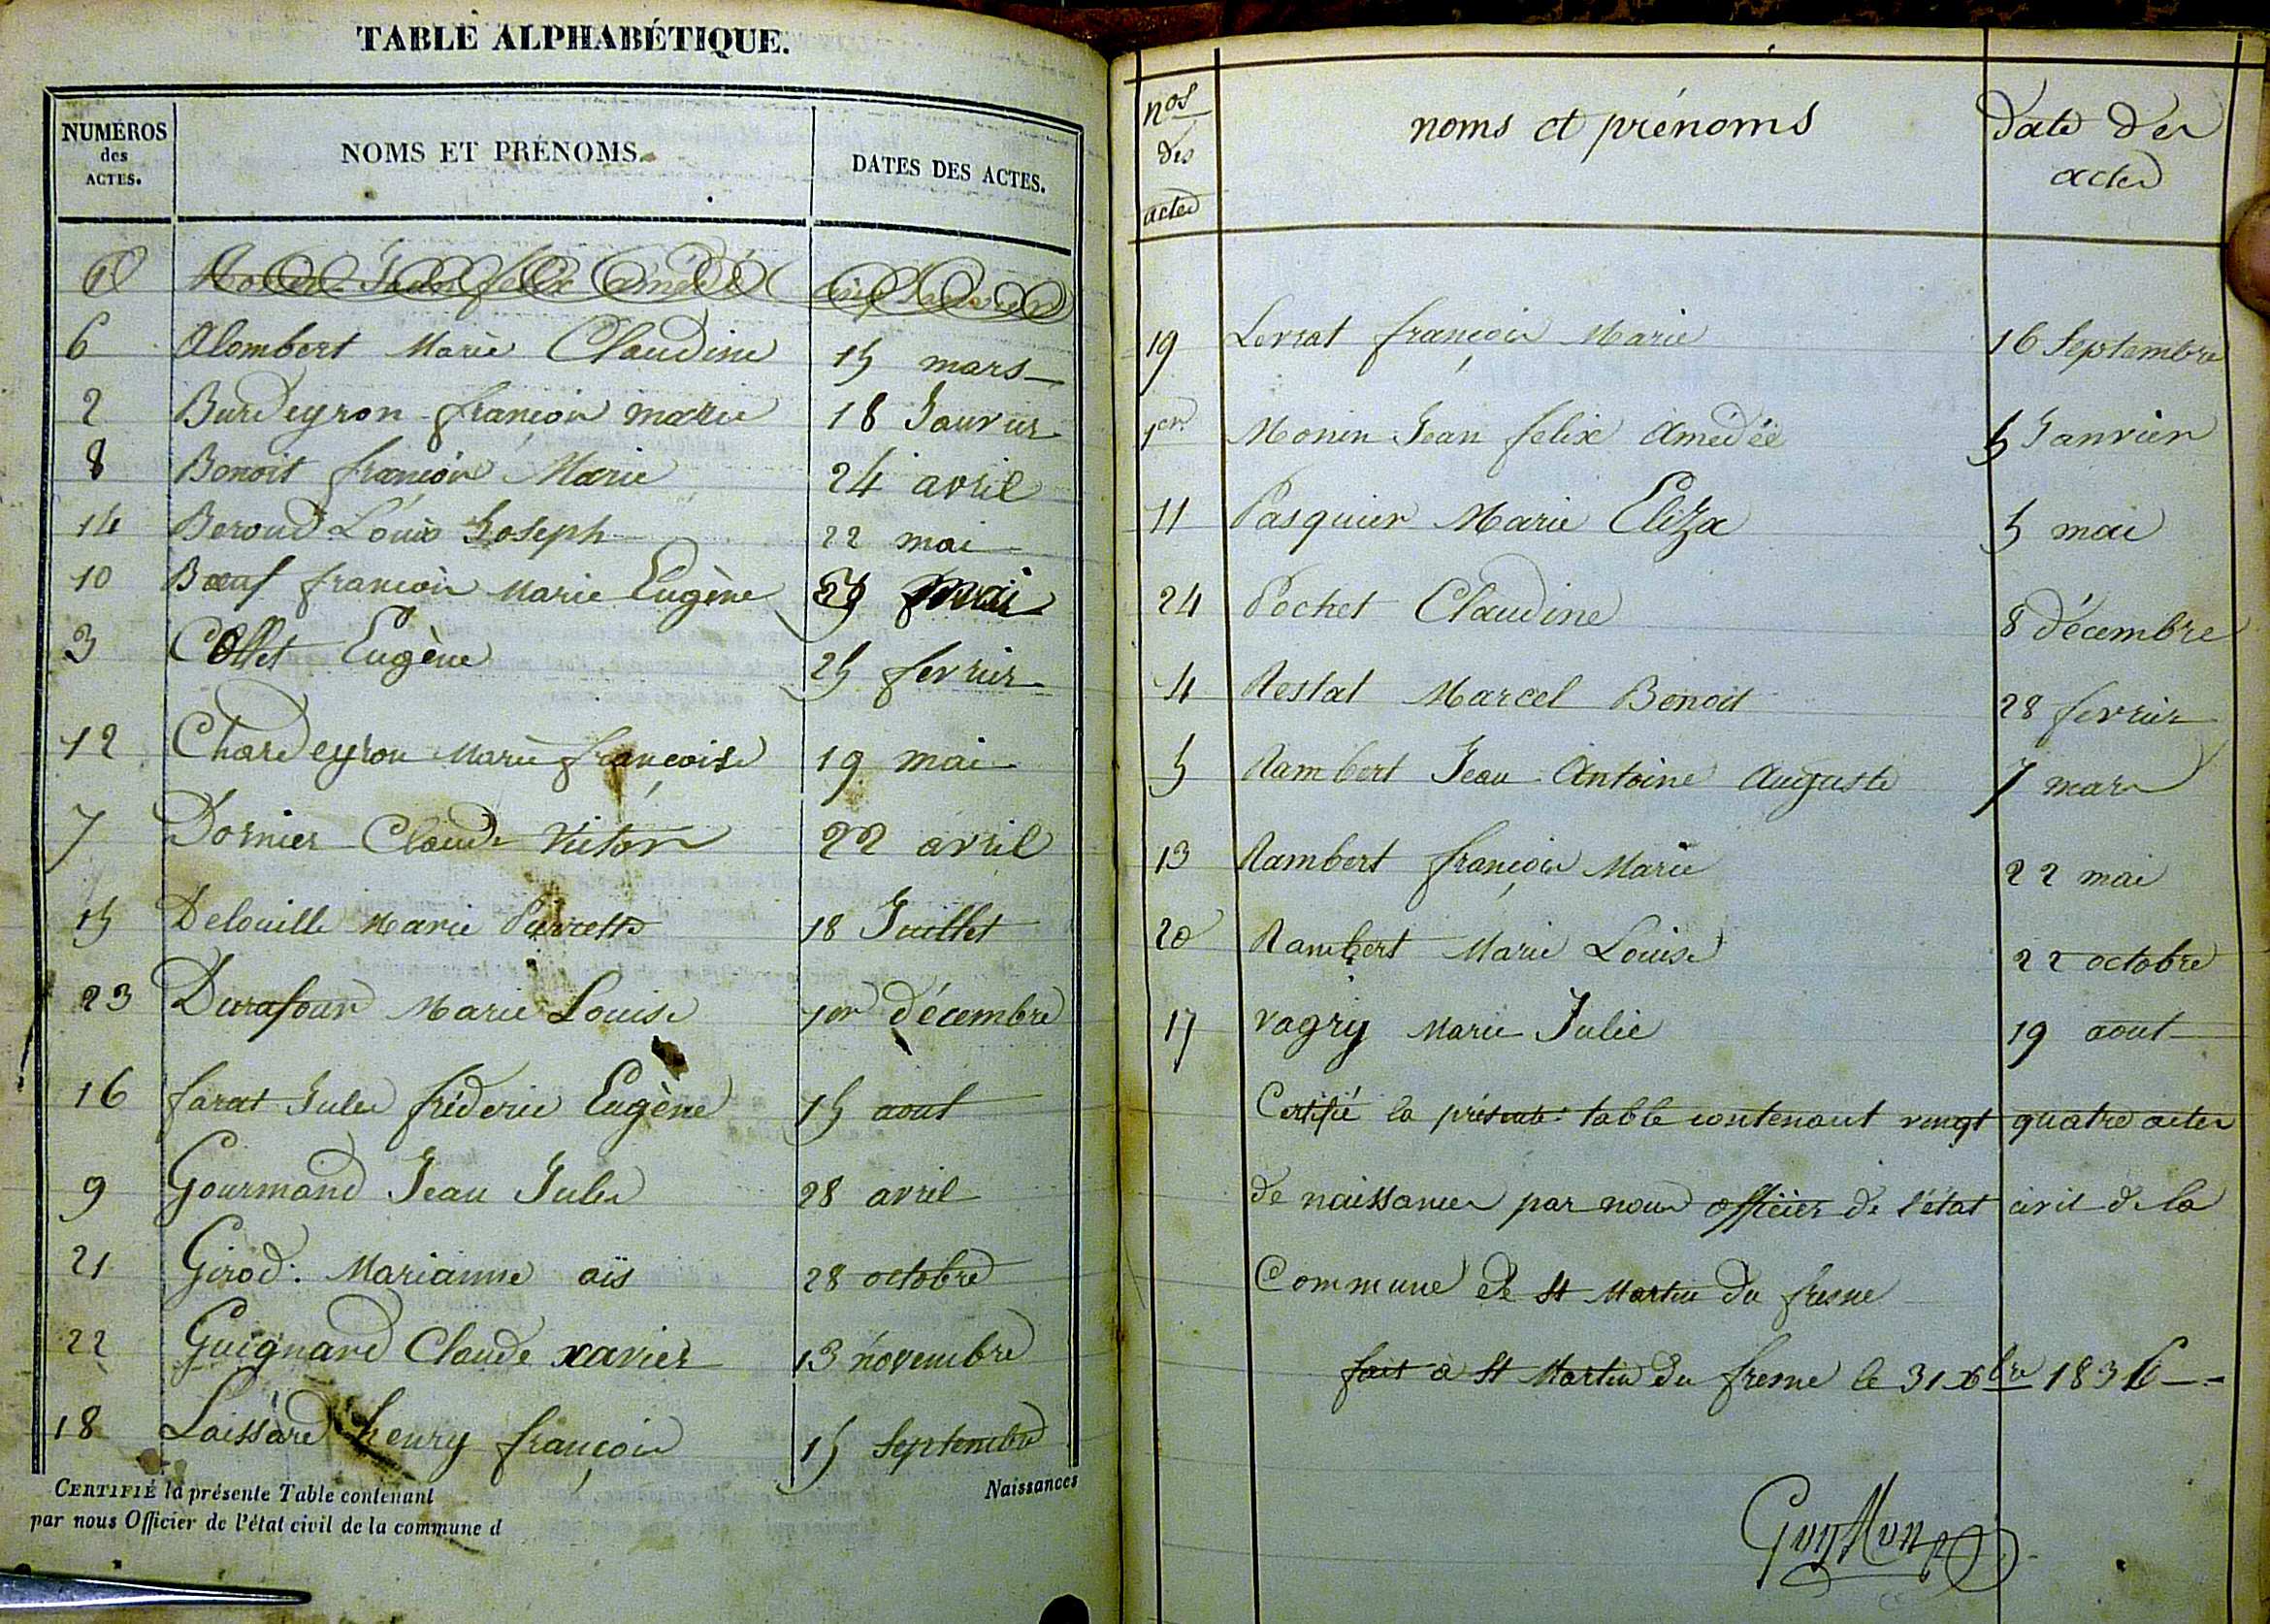 TABLE ALPHABÉTIQUE.
NUMÉROS des ACTES. NOMS ET PRÉNOMS. DATES DES ACTES.
Jean felix amédé cinq Janvier
6 Alombert Marie Claudine 15 mars
2 Burdeyron françois marie 18 Janvier
8 Benoit françois Marie 24 avril
14 Beroud Louis Joseph 22 mai
10 Bœuf françois Marie Eugène mai
3 Collet Eugène 25 fevrier
12 Chardeyron Marie françoise 19 mai
7 Dornier Claude Victor 22 avril
15 Delouille Marie Pierrette 18 Juillet
23 Durafour Marie Louise 1er décembre
16 farat Jules fréderic Eugène 15 aout
9 Gourmand Jean Jules 28 avril
21 Girod. Marianne aïs 28 octobre
22 Guignard Claude xavier 13 novembre
18 Laissard henry françois 15 Septembre
CERTIFIÉ la présente Table contenant Naissances
par nous Officier de l'état civil de la commune d
nos des actes noms et prénoms date des actes
19 Levrat françois Marie 16 Septembre
1er Monin Jean felix Amédée 5 Janvier
11 Pasquier Marie Eliza 5 mai
24 Pochet Claudine 8 décembre
4 Restat Marcel Benoit 28 fevrier
5 Rambert Jean Antoine Auguste 7 mars
13 Rambert françois Marie 22 mai
20 Rambert Marie Louise 22 octobre
17 vagry Marie Julie 19 aout
Certifié la présente table contenant vingt quatre actes
de naissances par nous officier de l'état civil de la
Commune de St Martin du fresne
fait à St Martin du fresne le 31 Xbre 1836